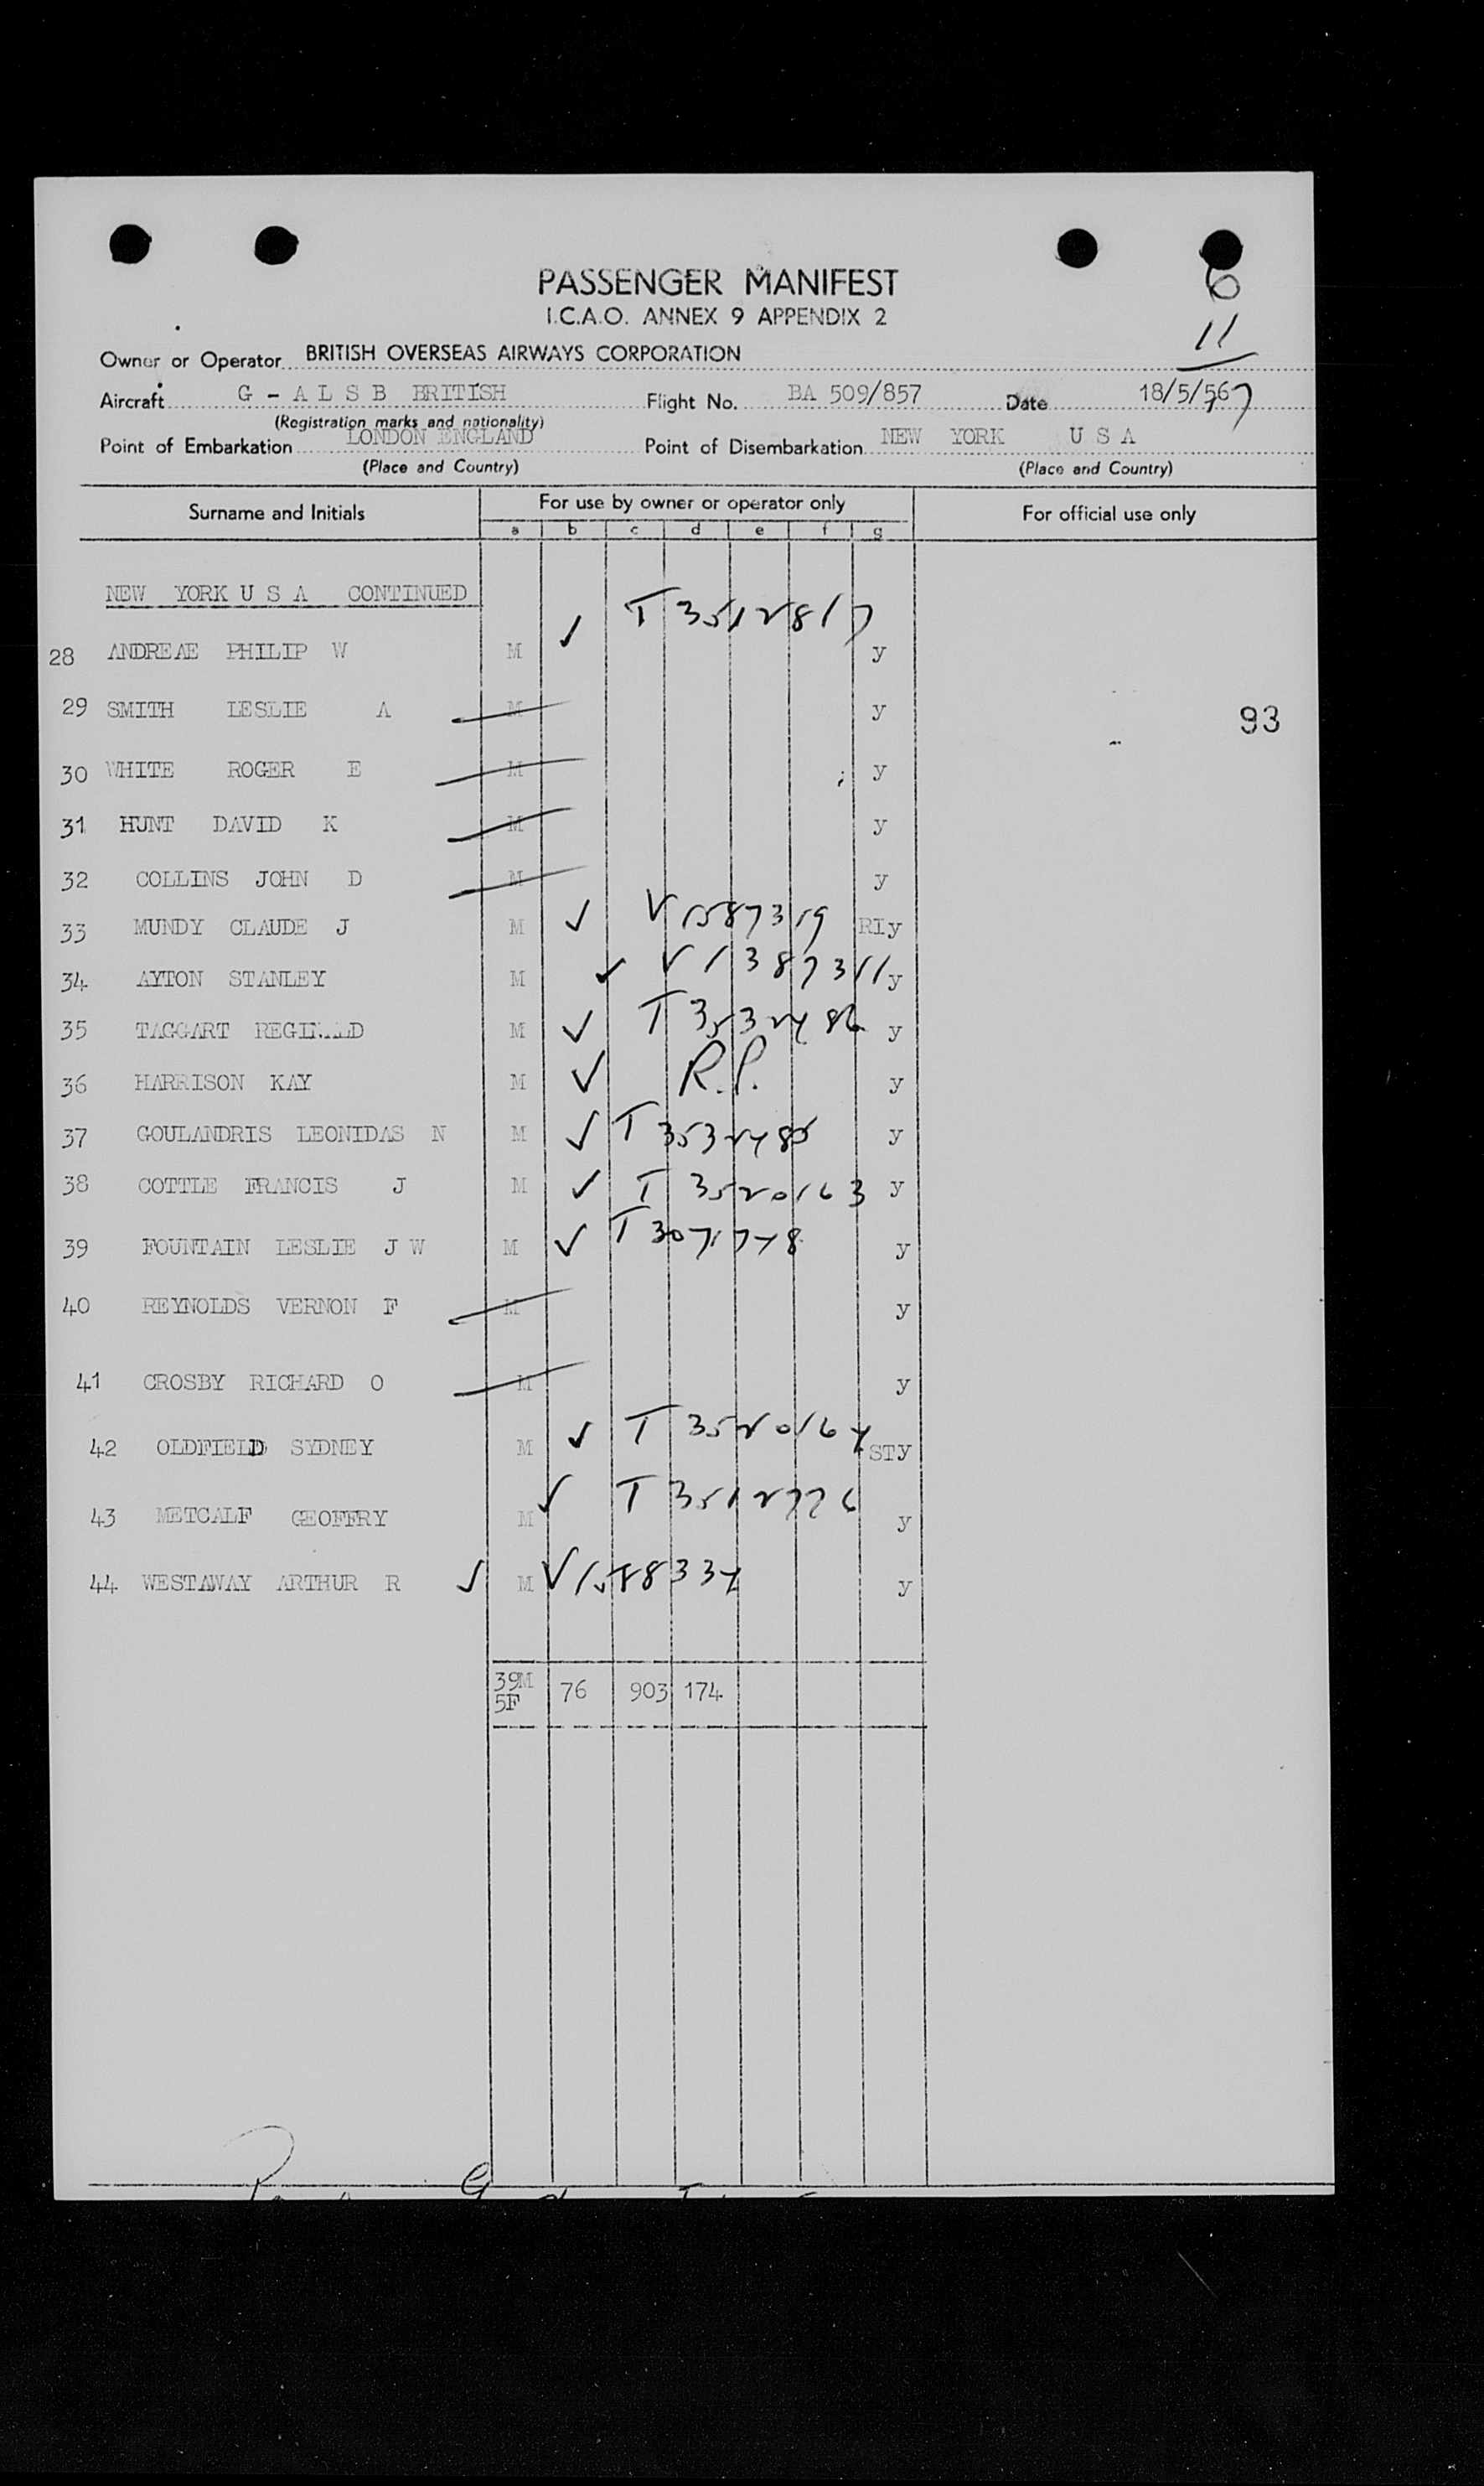 PASSENGER MANIFEST
I.C.A.O. ANNEX 9 APPENDIX 2
6
11
Owner or Operator BRITISH OVERSEAS AIRWAYS CORPORATION
Aircraft G - A L S B BRITISH Flight No. BA 509/857 Date 18/5/567
(Registration marks and nationality)
Point of Embarkation LONDON ENGLAND Point of Disembarkation NEW YORK U S A
(Place and Country) (Place and Country)
Surname and Initials For use by owner or operator only For official use only
a b c d e f g
NEW YORK U S A CONTINUED
28 ANDREAE PHILIP W M ✓ T 3512817 y
29 SMITH LESLIE A M y
93
30 WHITE ROGER E M y
31 HUNT DAVID K M y
32 COLLINS JOHN D M y
33 MUNDY CLAUDE J M ✓ V 1587319 RIy
34 AYTON STANLEY M ✓ V 1387311 y
35 TAGGART M ✓ T y
36 HARRISON KAY M ✓ R.P. y
37 GOULANDRIS LEONIDAS N M ✓ T y
38 COTTLE FRANCIS J M ✓ T 3520163 y
39 FOUNTAIN LESLIE J W M ✓ T y
40 REYNOLDS VERNON F M y
41 CROSBY RICHARD O M y
42 OLDFIELD SYDNEY M ✓ T 3520164 STy
43 METCALF GEOFFRY M ✓ T y
44 WESTAWAY ARTHUR R ✓ M y
39M 76 903 174
5F